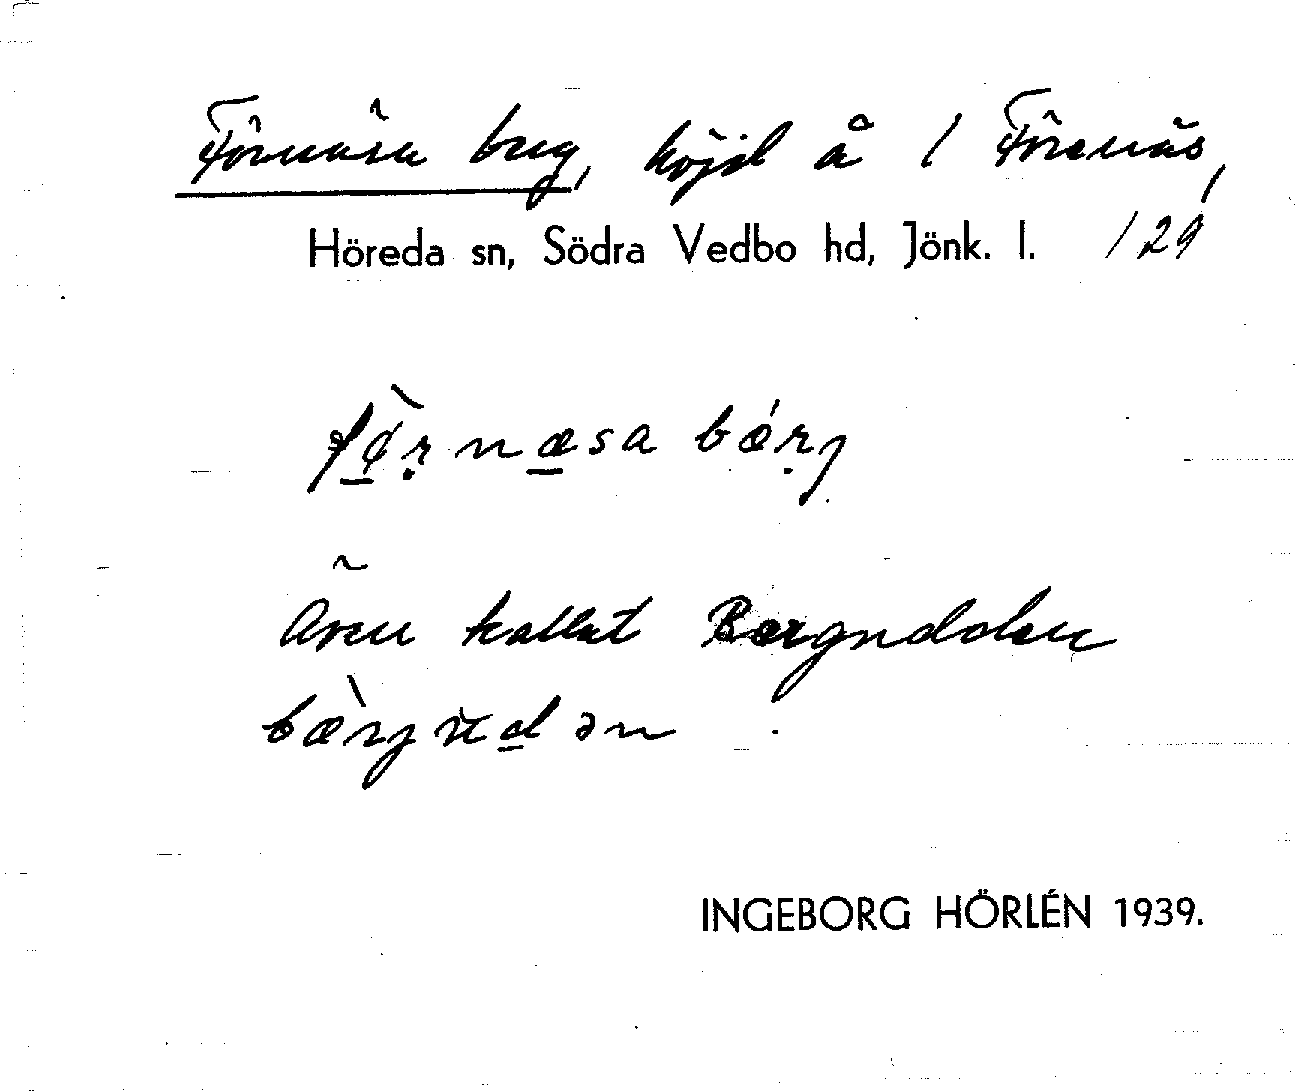 Förnäsa berg, höjd å 1 Förenäs,
Höreda sn, Södra Vedbo hd, Jönk. l. /29
fø̀r̤næsa bǽrj
Även kallat Bergudden
bæ̀rjudən
INGEBORG HÖRLÉN 1939.